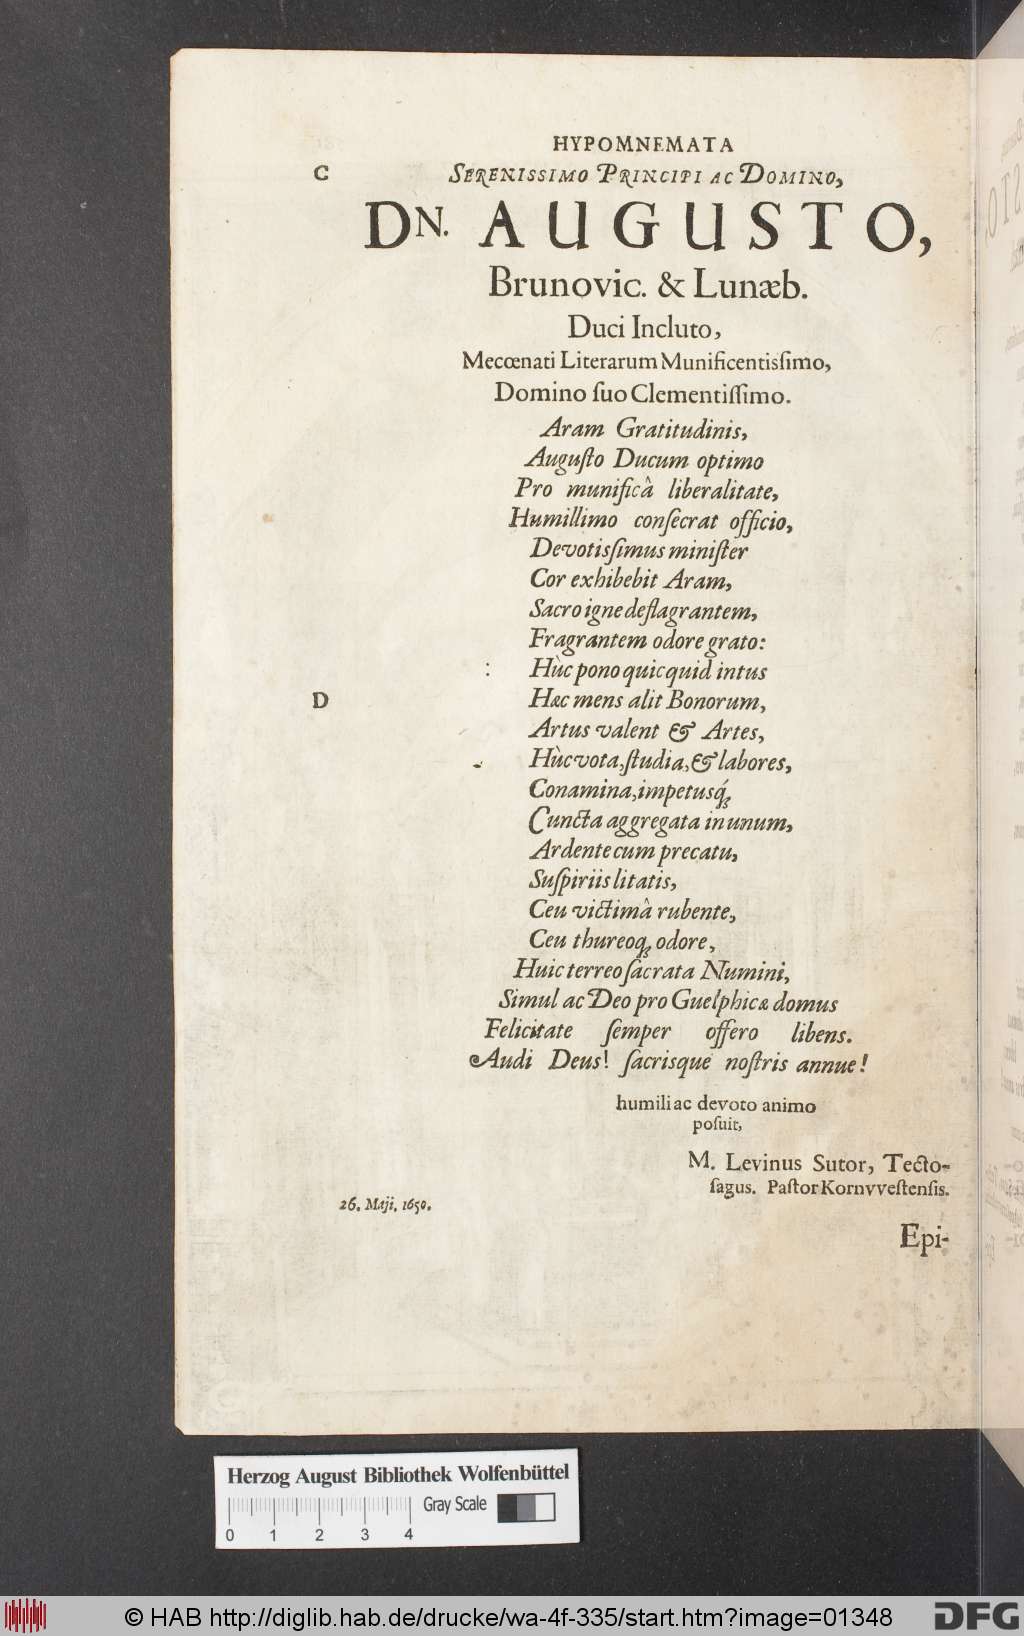 HYPOMNEMATA
C
SERENISSIMO PRINCIPI AC DOMINO,
DN. AUGUSTO,
Brunovic. & Lunæb.
Duci Incluto,
Mecœnati Literarum Munificentisſimo,
Domino ſuo Clementiſſimo.
Aram Gratitudinis,
Auguſto Ducum optimo
Pro munificâ liberalitate,
Humillimo conſecrat officio,
Devotisſimus miniſter
Cor exhibebit Aram,
Sacro igne deflagrantem,
Fragrantem odore grato:
Hùc pono quicquid intus
D
Hæc mens alit Bonorum,
Artus valent & Artes,
Hùc vota, ſtudia, & labores,
Conamina, impetusq́;
Cuncta aggregata in unum,
Ardente cum precatu,
Suſpiriis litatis,
Ceu victimâ rubente,
Ceu thureoq; odore,
Huic terreo ſacrata Numini,
Simul ac Deo pro Guelphicæ domus
Felicitate ſemper offero libens.
Audi Deus! ſacrisque noſtris annue!
humili ac devoto animo
poſuit,
M. Levinus Sutor, Tecto-
ſagus. Paſtor Kornvveſtenſis.
26. Maji. 1650.
Epi-
Herzog August Bibliothek Wolfenbüttel
Gray Scale
0 1 2 3 4
© HAB http://diglib.hab.de/drucke/wa-4f-335/start.htm?image=01348
DFG